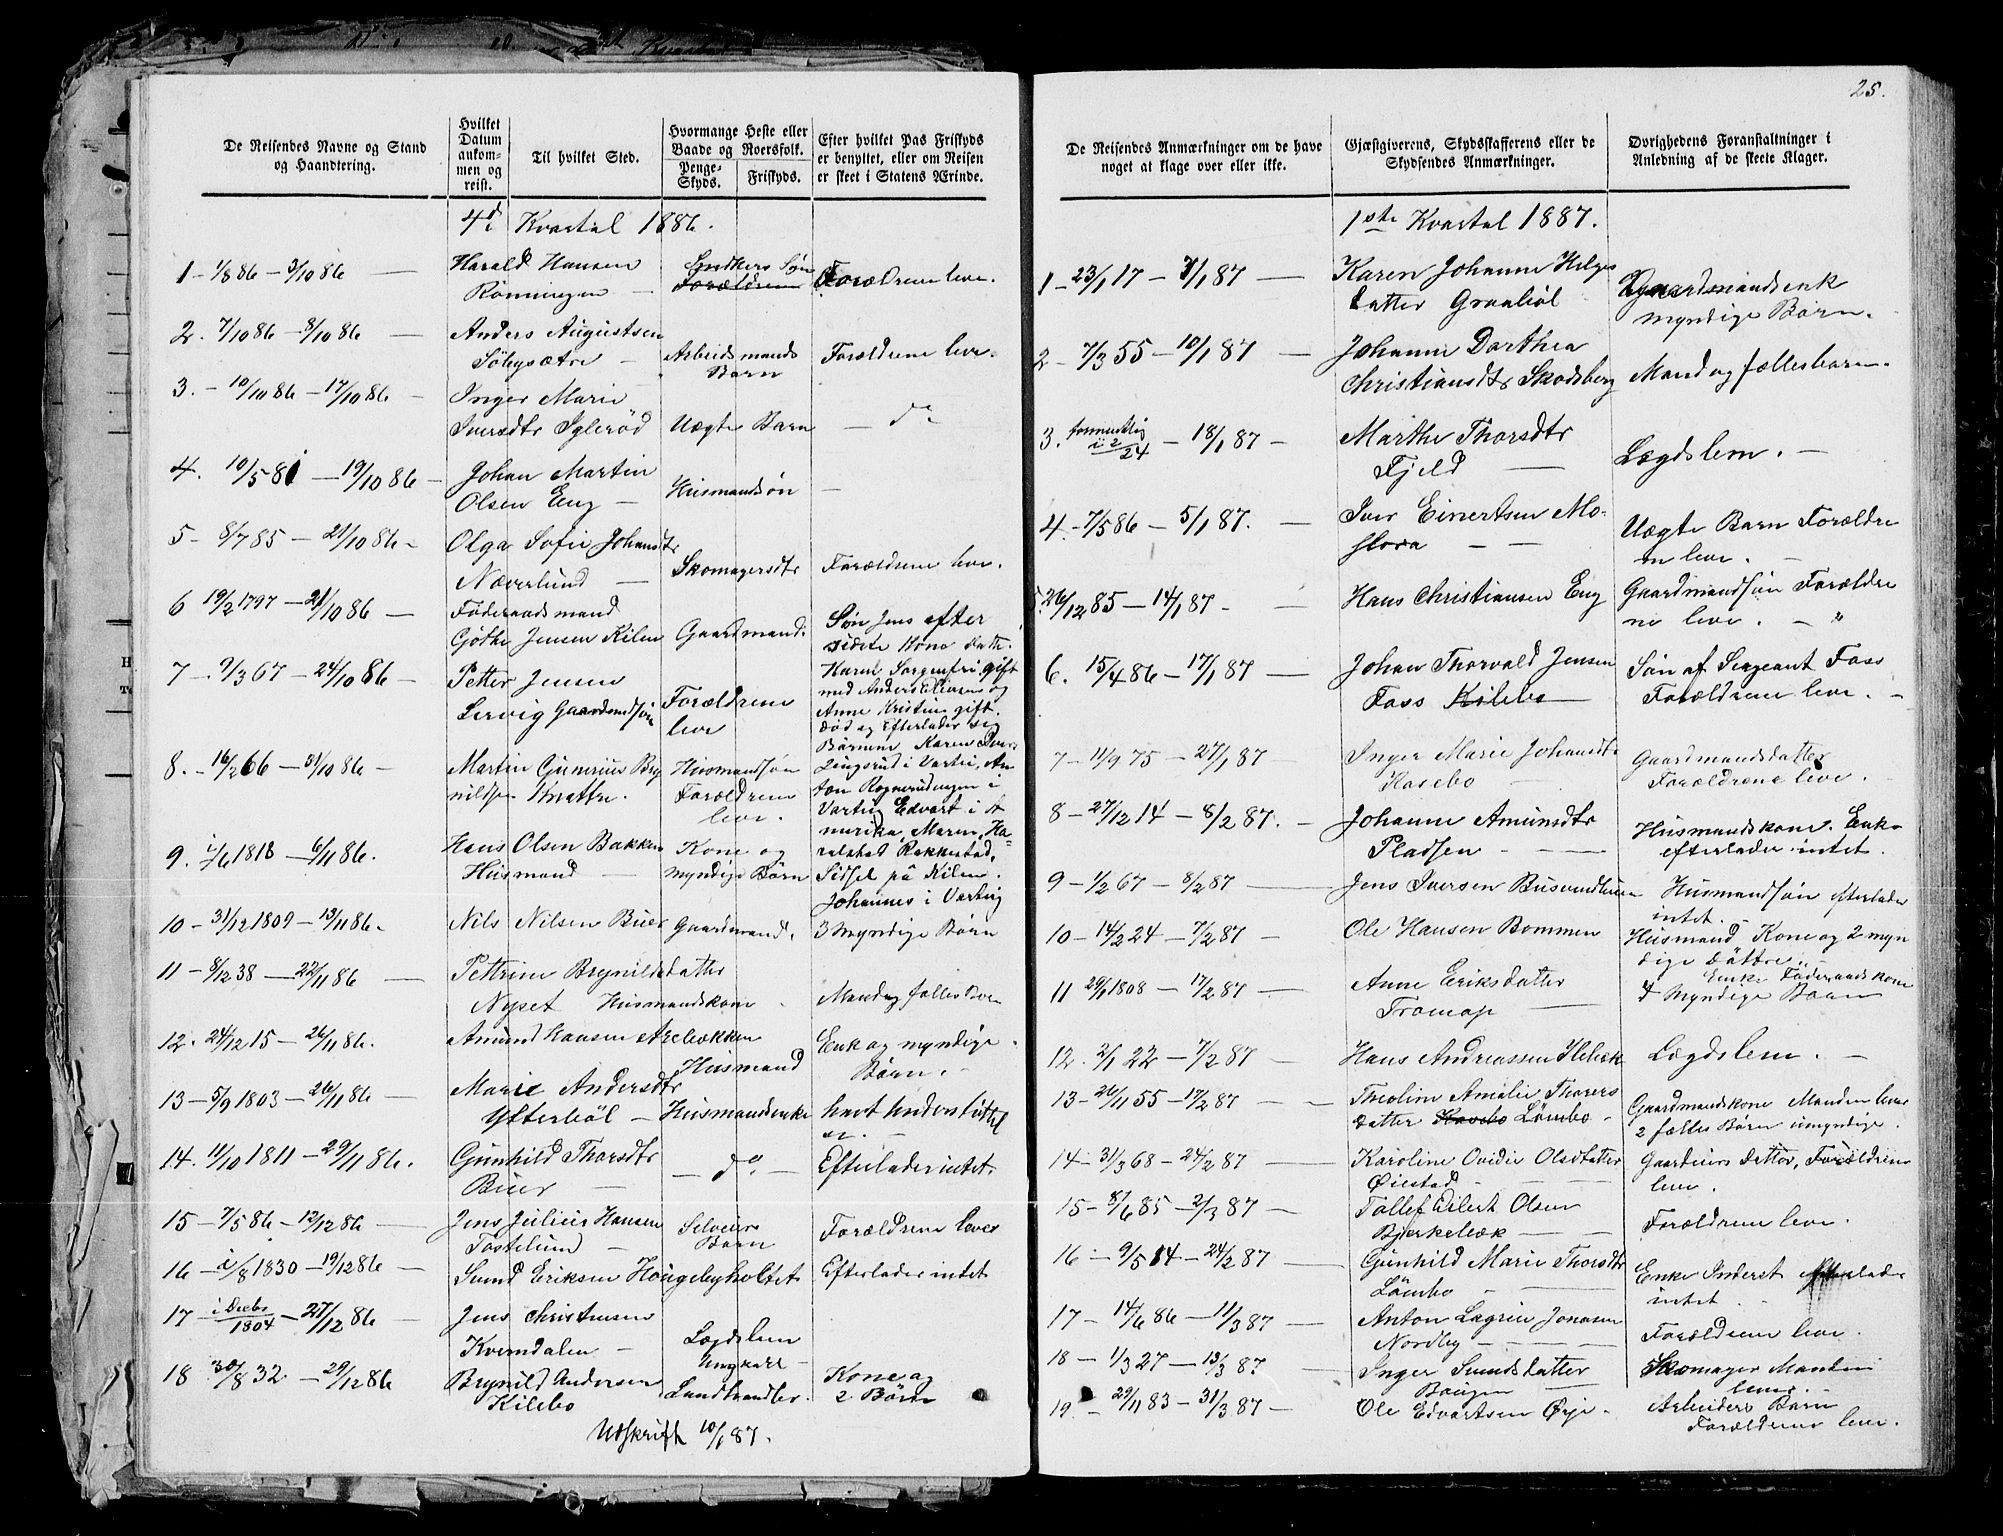 25.
De Reisendes Navne og Stand og Haandtering.
Hvilket Datum ankommen og reist.
Til hvilket Sted.
Hvormange Heste eller Baade og Roersfolk.
Penge-Skyds.
Friskyds.
Efter hvilket Pas Friskyds er benyttet, eller om Reisen er skeet i Statens Ærinde.
4d Kvartal 1886.
1 - 1/8 86 - 3/10 86 - Harald Hansen Søn Forældrene Forældrene leve.
Rönningen -
2. 7/10 86 - 8/10 86 - Anders Augustsen
Söbysætre - Arbeidsmands Barn Forældrene leve.
3. - 10/10 86 - 17/10 86 - Inger Marie
Iversdtr Iglerød Uægte Barn - do
4. 10/5 81 - 19/10 86 - Johan Martin
Olsen Eng - Husmandsøn -
5 - 8/7 85 - 21/10 86 - Olga Sofie Johansdtr
Næverlund - Skomagersdtr Forældrene leve.
6 19/2 1797 - 21/10 86 - Föderaadsmand
Gjöthe Jensen Kilen Gaardmand. Søn Jens efter
sidste Kone
7 - 9/3 67 - 24/10 86 - Petter Jensen
Lervig Gaardmdsøn Forældrene leve
Karen Sorgenfri gift
med Anders Eliasen og
Anne Kristine gift.
død og Efterlader sig
Børnene Karen
i Varteig, An-
ton Rognerudengen i
Varteig Edvart i A
merika, Maren, Ha-
ralstad Rakkestad,
Sidsel på Kilen.
Johannes i Varteig
8. - 16/2 66 - 31/10 86 - Martin Gunerius Bry
nildsen Knatte. Husmandsøn
Forældrene leve.
9. i/6 1818 - 6/11 86. Hans Olsen Bakken Kone og
Husmand - myndige Børn
10 - 31/12 1809 - 13/11 86. Nils Nilsen Buer Gaardmand. 3 Myndige Børn
11 - 8/12 38 - 22/11 86 - Pettrine Brynildsdatter
Nyset Husmandskone - Mand og fælles Børn
12. 24/12 15 - 26/11 86. Amund Hansen Arebækken Enk og myndige
Husmand Børn. -
13 - 5/9 1803 - 26/11 86 - Marie Andersdtr
Ytterböl - Husmandsenke havt Understöttelse. -
14. 11/10 1811 - 29/11 86. Gunhild Thorsdtr - do - Efterlader intet.
Buer -
15 - 7/5 86 - 12/12 86 - Jens Julius Hansen Selveier Forældrene lever
Tostelund - Barn
16 - i/8 1830 - 19/12 86 - Svend Eriksen Hougebyholtet Efterlader intet
17 i Decbr 1804 - 27/12 86 Jens Christensen
Kverndalen - Lægdslem
Ungkarl -
18 30/8 32 - 29/12 86 Brynild Andersen Landhandler. Kone og
Kilebo 2 Børn
Udskrift 10/1 87.
De Reisendes Anmærkninger om de have noget at klage over eller ikke.
Gjæstgiverens, Skydsskafferens eller de Skydsendes Anmærkninger.
Øvrighedens Foranstaltninger i Anledning af de skete Klager.
1ste Kvartal 1887.
1 - 23/1 17 - 3/1 87 - Karen Johanne Helges Gaardmandsenk
datter Graabøl myndige Børn.
2 - 7/3 55 - 10/1 87 - Johanne Dorthea
Christiansdtr Skodsberg Mand og fællesbarn.
3. formentlig i 2/24 - 18/1 87 - Marthe Thorsdtr
Fjeld - Lægdslem. -
4. - 7/5 86 - 5/1 87. - Iver Einertsen Mo- Uægte Barn Forældre
slora - - n leve. -
5. 26/12 85 - 14/1 87 - - Hans Christiansen Eng Gaardmandsøn Forældre
ne leve. - "
6. 15/4 86 - 17/1 87 Johan Thorvald Jensen Søn af Sergeant Foss
Foss Kilebo Forældrene leve. -
7 - 11/9 75 - 27/1 87 Inger Marie Johansdtr Gaardmandsdatter
Kasebo - Forældrene leve.
8 - 27/12 14 - 8/2 87. - Johanne Amundsdtr Husmandskone. Enk.
Pladsen - - - efterlader intet.
9 - 1/2 67 - 8/2 87 - Jens Iversen Husmandsøn efterlader
intet. -
10 - 14/2 24 - 7/2 87 - Ole Hansen Bommen Husmand Kone og 2 myn
dige Døttre.
11 29/1 1808 - 17/2 87 - Anne Eriksdatter Enke Föderaadskone
Tromop - 4 Myndige Børn
12. 2/1 22 - 7/2 87 - Hans Andreassen Ilebæk Lægdslem. -
13 - 26/11 55 - 17/2 87 - - Theoline Amalie Thorers Gaardmandskone Manden lever
datter Kasebo Lömbo - 2 fælles Børn umyndige.
14 - 31/3 68 - 24/2 87 - Karoline Ovidie Olsdatter Gaardeiers Datter, Forældrene
Øiestad - leve.
15 - 8/6 85 - 2/3 87 - Tollef Eilert Olsen
Bjerkebæk - Forældrene leve.
16 - 9/5 14 - 24/2 87 - Gunhild Marie Thorsdtr Enke Inderst efterlader
Lömbo - intet
17 - 14/6 86 - 11/3 87 - Anton Lagrin Jonasen
Nordby - Forældrene leve.
18 - 1/3 27 - 13/3 87 - Inger Svendsdatter Skomager Manden
Baugen lever. -
19 - 29/11 83 - 31/3 87 - Ole Edvartsen Ørje. Arbeiders Barn
Forældrene leve.